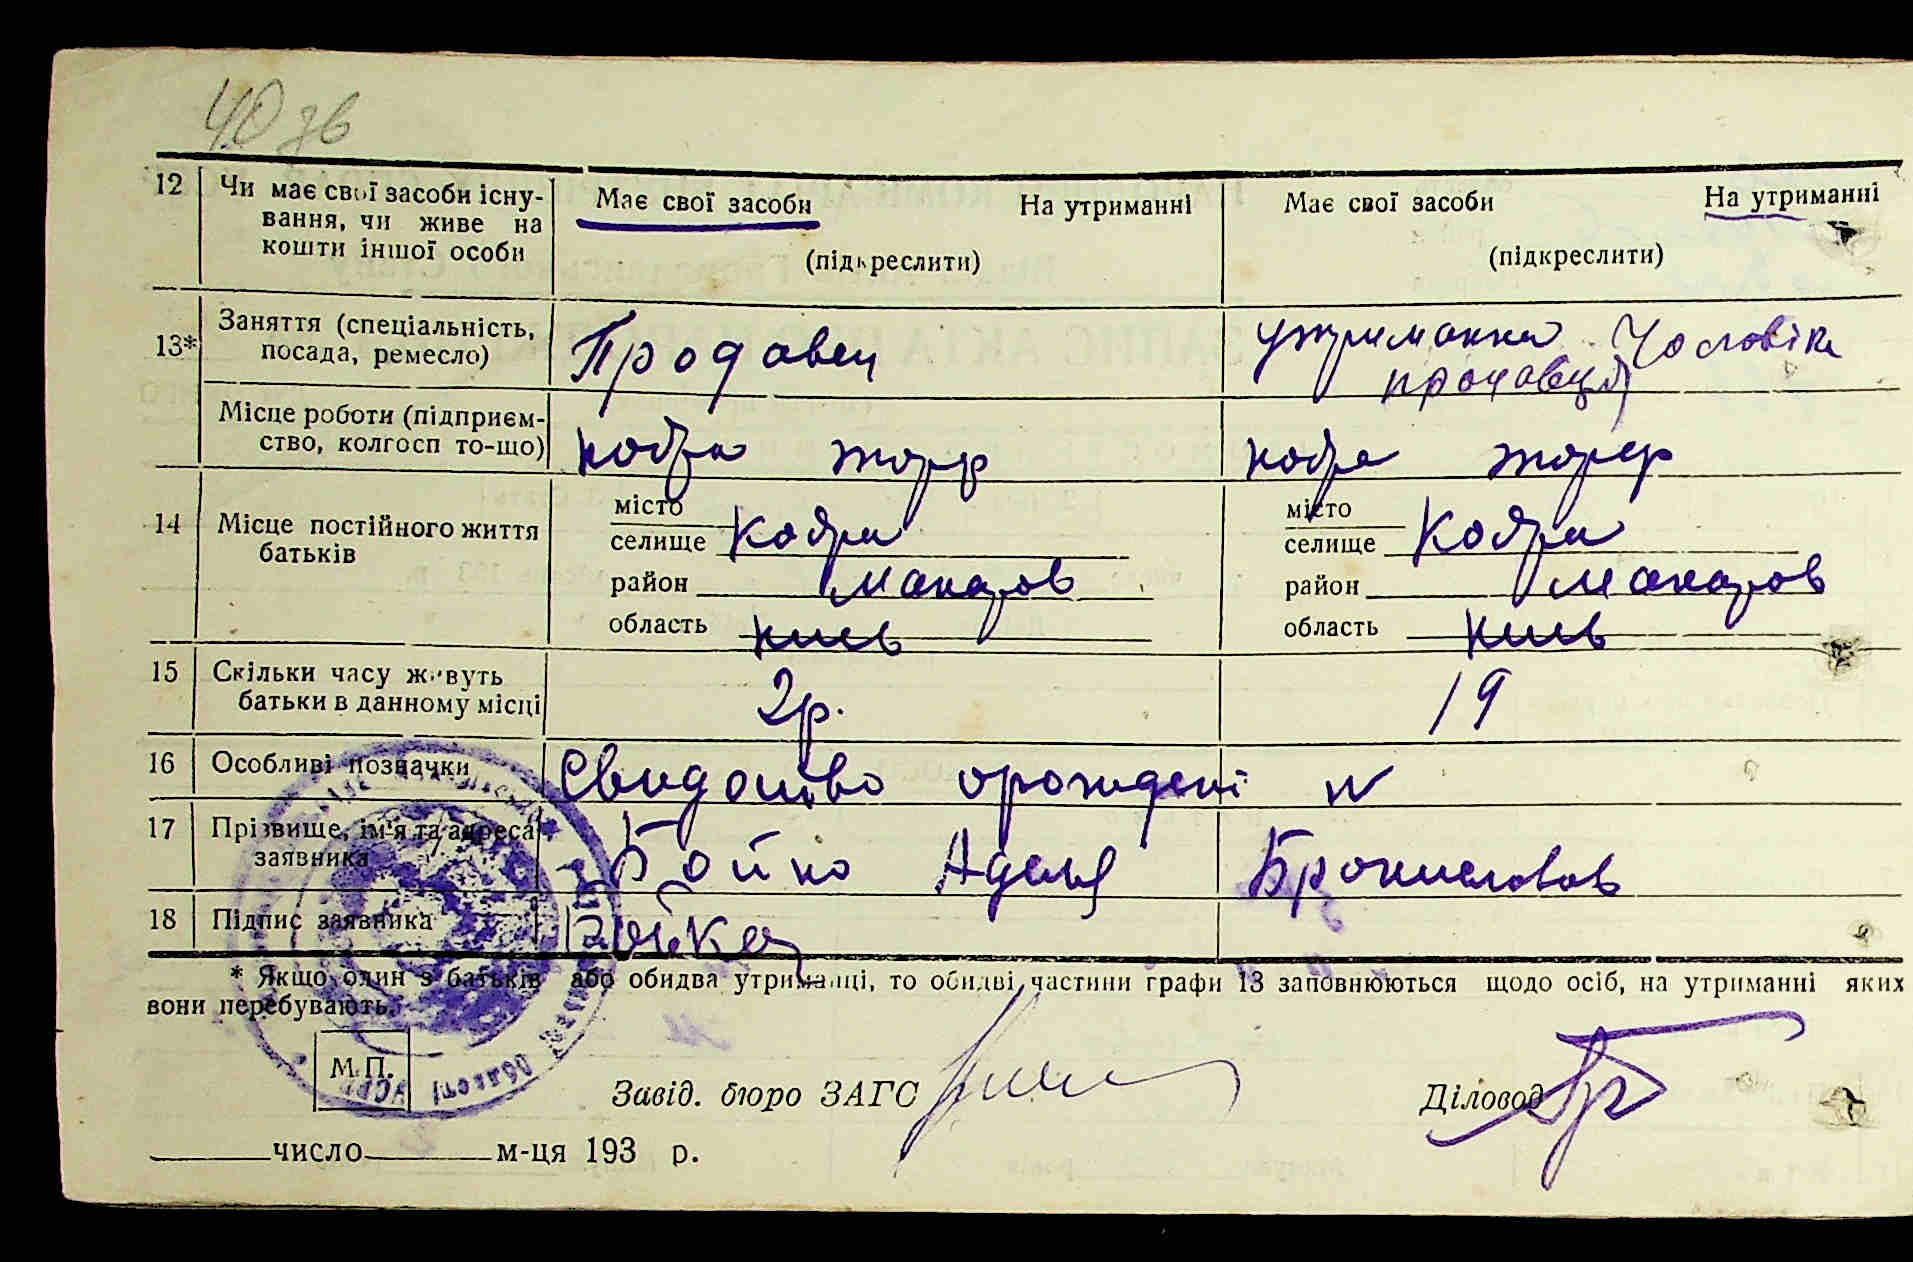 40 зв
12 Чи має свої засоби існу- Має свої засоби На утриманні Має свої засоби На утриманні
вання, чи живе на
кошти іншої особи (підкреслити) (підкреслити)
13* Заняття (спеціальність, Продавец утриманка Чоловіка
посада, ремесло) продавця
Місце роботи (підприєм- Кобра торф Кобра торф
ство, колгосп то-що)
14 Місце постійного життя місто місто
батьків селище Кобра селище Кобра
район Макаров район Макаров
область Киев область Киев
15 Скільки часу живуть 2р. 19
батьки в данному місці
16 Особливі позначки Свидоцтво орождені N
17 Прізвище, ім'я та адреса Бойко Аделя Брониславов
заявника
18 Підпис заявника Бойко
* Якщо один з батьків або обидва утриманці, то обидві частини графи 13 заповнюються щодо осіб, на утриманні яких
вони перебувають.
М. П.
Завід. бюро ЗАГС Діловод
число м-ця 193 р.